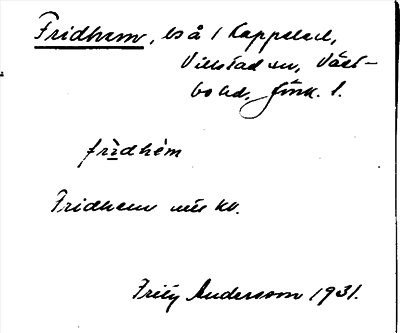 Fridhem, ls å 1 Kappeled,
Villstad sn, Väst-
bo hd, Jönk. l.
frìdhèm
Fridhem
Frity Andersson 1931.